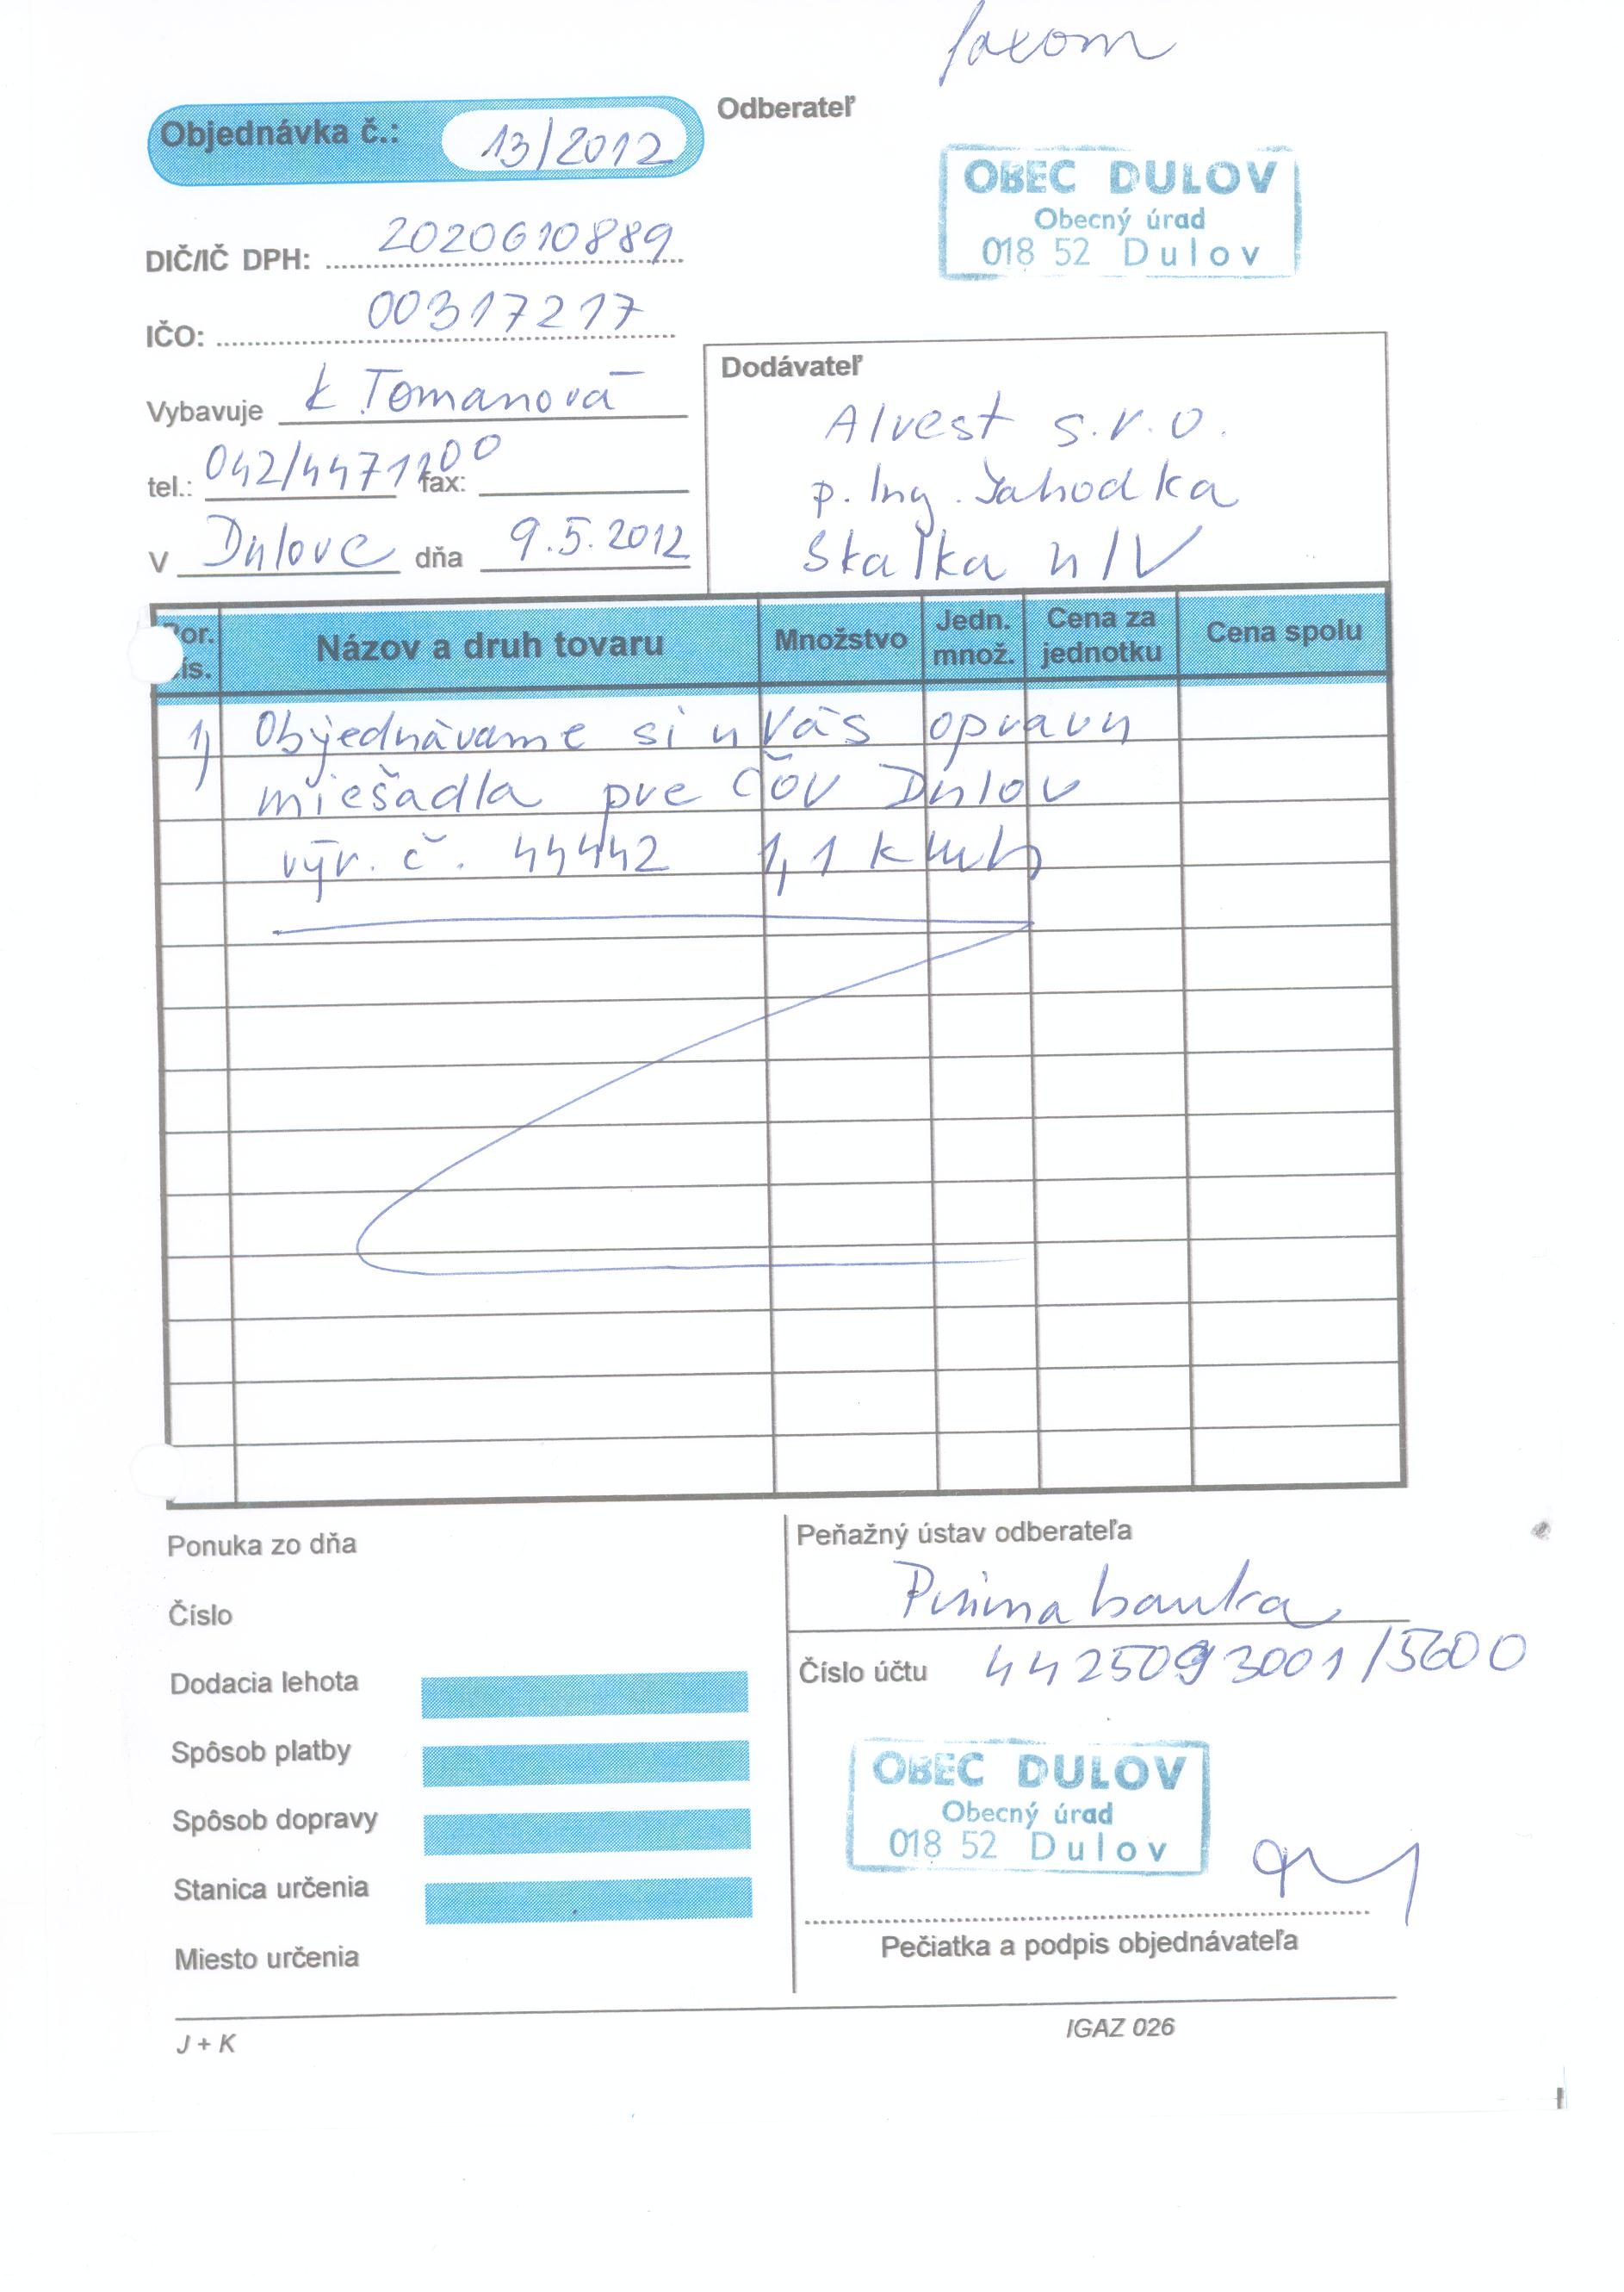 faxom
Objednávka č.: 13/2012
Odberateľ
OBEC DULOV
Obecný úrad
018 52 Dulov
DIČ/IČ DPH: 2020610889
IČO: 00317217
Vybavuje K Tomanová
tel.: 042/4471200 fax:
V Dulove dňa 9.5.2012
Dodávateľ
Alvest s.r.o.
p. Ing. Jahodka
Skalka n/V
Por. čís. Názov a druh tovaru Množstvo Jedn. množ. Cena za jednotku Cena spolu
1) Objednávame si u Vás opravu
miešadla pre ČOV Dulov
výr. č. 44442 1,1 kWh
Ponuka zo dňa
Číslo
Dodacia lehota
Spôsob platby
Spôsob dopravy
Stanica určenia
Miesto určenia
Peňažný ústav odberateľa
Prima banka
Číslo účtu 4425093001/5600
OBEC DULOV
Obecný úrad
018 52 Dulov
Pečiatka a podpis objednávateľa
J + K
IGAZ 026